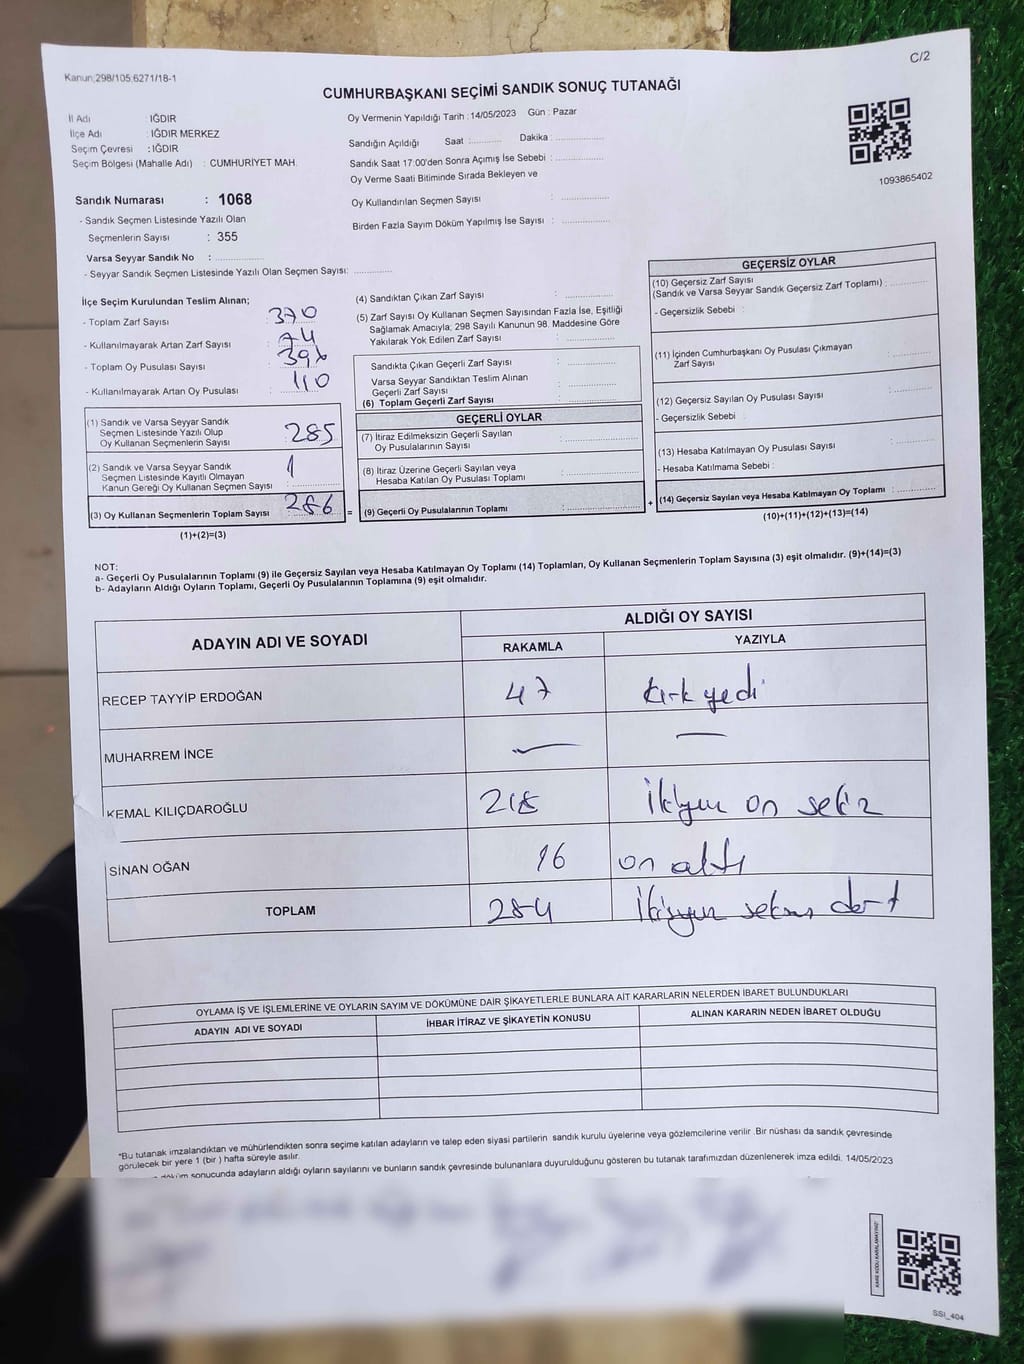 Kanun;298/105;6271/18-1
C/2
CUMHURBAŞKANI SEÇİMİ SANDIK SONUÇ TUTANAĞI
İl Adı : IĞDIR
İlçe Adı : IĞDIR MERKEZ
Seçim Çevresi : IĞDIR
Seçim Bölgesi (Mahalle Adı) : CUMHURİYET MAH.
Oy Vermenin Yapıldığı Tarih : 14/05/2023 Gün : Pazar
Sandığın Açıldığı Saat :........... Dakika :..............
Sandık Saat 17:00'den Sonra Açımış İse Sebebi :..............
Oy Verme Saati Bitiminde Sırada Bekleyen ve
Oy Kullandırılan Seçmen Sayısı : ..............
Birden Fazla Sayım Döküm Yapılmış İse Sayısı : ..............
1093865402
Sandık Numarası : 1068
- Sandık Seçmen Listesinde Yazılı Olan
Seçmenlerin Sayısı : 355
Varsa Seyyar Sandık No : ..............
- Seyyar Sandık Seçmen Listesinde Yazılı Olan Seçmen Sayısı: ............
İlçe Seçim Kurulundan Teslim Alınan;
- Toplam Zarf Sayısı : 370
- Kullanılmayarak Artan Zarf Sayısı :
- Toplam Oy Pusulası Sayısı :
- Kullanılmayarak Artan Oy Pusulası : 110
(1) Sandık ve Varsa Seyyar Sandık
Seçmen Listesinde Yazılı Olup
Oy Kullanan Seçmenlerin Sayısı : 285
(2) Sandık ve Varsa Seyyar Sandık
Seçmen Listesinde Kayıtlı Olmayan
Kanun Gereği Oy Kullanan Seçmen Sayısı : 1
(3) Oy Kullanan Seçmenlerin Toplam Sayısı : 286 =
(1)+(2)=(3)
(4) Sandıktan Çıkan Zarf Sayısı : ..............
(5) Zarf Sayısı Oy Kullanan Seçmen Sayısından Fazla İse, Eşitliği
Sağlamak Amacıyla; 298 Sayılı Kanunun 98. Maddesine Göre
Yakılarak Yok Edilen Zarf Sayısı : ..............
Sandıkta Çıkan Geçerli Zarf Sayısı : ..............
Varsa Seyyar Sandıktan Teslim Alınan
Geçerli Zarf Sayısı : ..............
(6) Toplam Geçerli Zarf Sayısı : ..............
GEÇERLİ OYLAR
(7) İtiraz Edilmeksizin Geçerli Sayılan
Oy Pusulalarının Sayısı : ..............
(8) İtiraz Üzerine Geçerli Sayılan veya
Hesaba Katılan Oy Pusulası Toplamı : ..............
(9) Geçerli Oy Pusulalarının Toplamı : .............. +
GEÇERSİZ OYLAR
(10) Geçersiz Zarf Sayısı
(Sandık ve Varsa Seyyar Sandık Geçersiz Zarf Toplamı) : ..........
- Geçersizlik Sebebi :
(11) İçinden Cumhurbaşkanı Oy Pusulası Çıkmayan
Zarf Sayısı : ..........
(12) Geçersiz Sayılan Oy Pusulası Sayısı : ..........
- Geçersizlik Sebebi :
(13) Hesaba Katılmayan Oy Pusulası Sayısı : ..........
- Hesaba Katılmama Sebebi :
(14) Geçersiz Sayılan veya Hesaba Katılmayan Oy Toplamı : ..........
(10)+(11)+(12)+(13)=(14)
NOT:
a- Geçerli Oy Pusulalarının Toplamı (9) ile Geçersiz Sayılan veya Hesaba Katılmayan Oy Toplamı (14) Toplamları, Oy Kullanan Seçmenlerin Toplam Sayısına (3) eşit olmalıdır. (9)+(14)=(3)
b- Adayların Aldığı Oyların Toplamı, Geçerli Oy Pusulalarının Toplamına (9) eşit olmalıdır.
ADAYIN ADI VE SOYADI ALDIĞI OY SAYISI
RAKAMLA YAZIYLA
RECEP TAYYİP ERDOĞAN 47 kırk yedi
MUHARREM İNCE — —
KEMAL KILIÇDAROĞLU 218 İkiyüz on sekiz
SİNAN OĞAN 16 on altı
TOPLAM 284 İkiyüz seksen dört
OYLAMA İŞ VE İŞLEMLERİNE VE OYLARIN SAYIM VE DÖKÜMÜNE DAİR ŞİKAYETLERLE BUNLARA AİT KARARLARIN NELERDEN İBARET BULUNDUKLARI
ADAYIN ADI VE SOYADI İHBAR İTİRAZ VE ŞİKAYETİN KONUSU ALINAN KARARIN NEDEN İBARET OLDUĞU
*Bu tutanak imzalandıktan ve mühürlendikten sonra seçime katılan adayların ve talep eden siyasi partilerin sandık kurulu üyelerine veya gözlemcilerine verilir. Bir nüshası da sandık çevresinde
görülecek bir yere 1 (bir) hafta süreyle asılır.
döküm sonucunda adayların aldığı oyların sayılarını ve bunların sandık çevresinde bulunanlara duyurulduğunu gösteren bu tutanak tarafımızdan düzenlenerek imza edildi. 14/05/2023
KARE KODU KARALAMAYINIZ!
SSİ_404